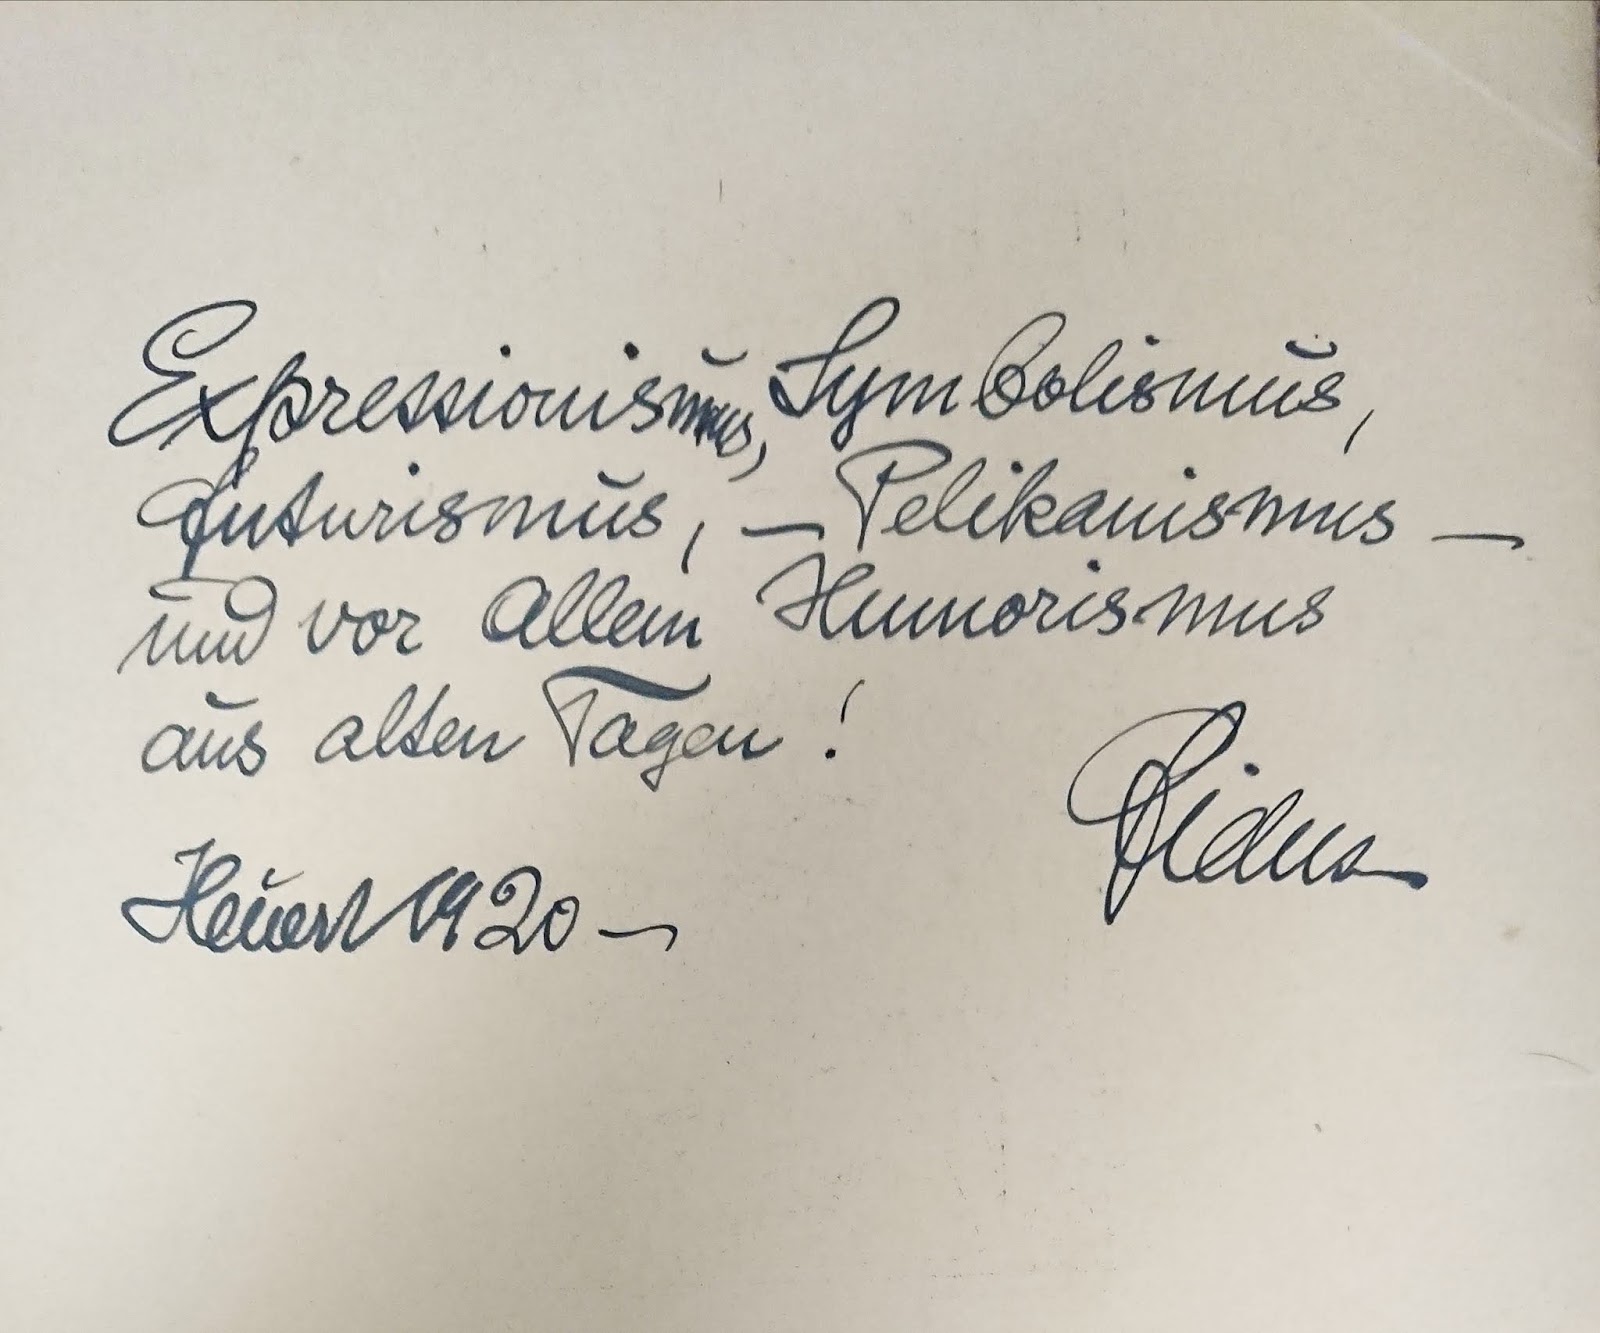 Expressionismus, Symbolismus,
Futurismus, — Pelikanismus —
und vor Allem Humorismus
aus alten Tagen!
Fidus
Heuert 1920 —